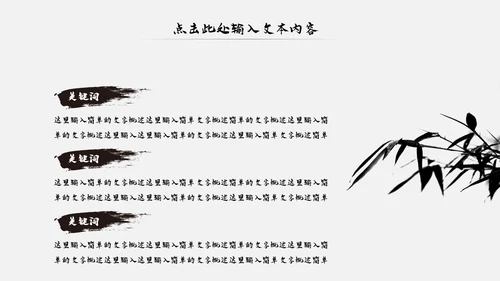 点击此处输入文本内容
关键词
这里输入简单的文字概述这里输入简单文字概述这里输入简
单的文字概述这里输入简单的文字概述这里输入简单
关键词
这里输入简单的文字概述这里输入简单文字概述这里输入简
单的文字概述这里输入简单的文字概述这里输入简单
关键词
这里输入简单的文字概述这里输入简单的文字概述这里输入
简单的文字概述这里输入这里输入简单的文字概述简单